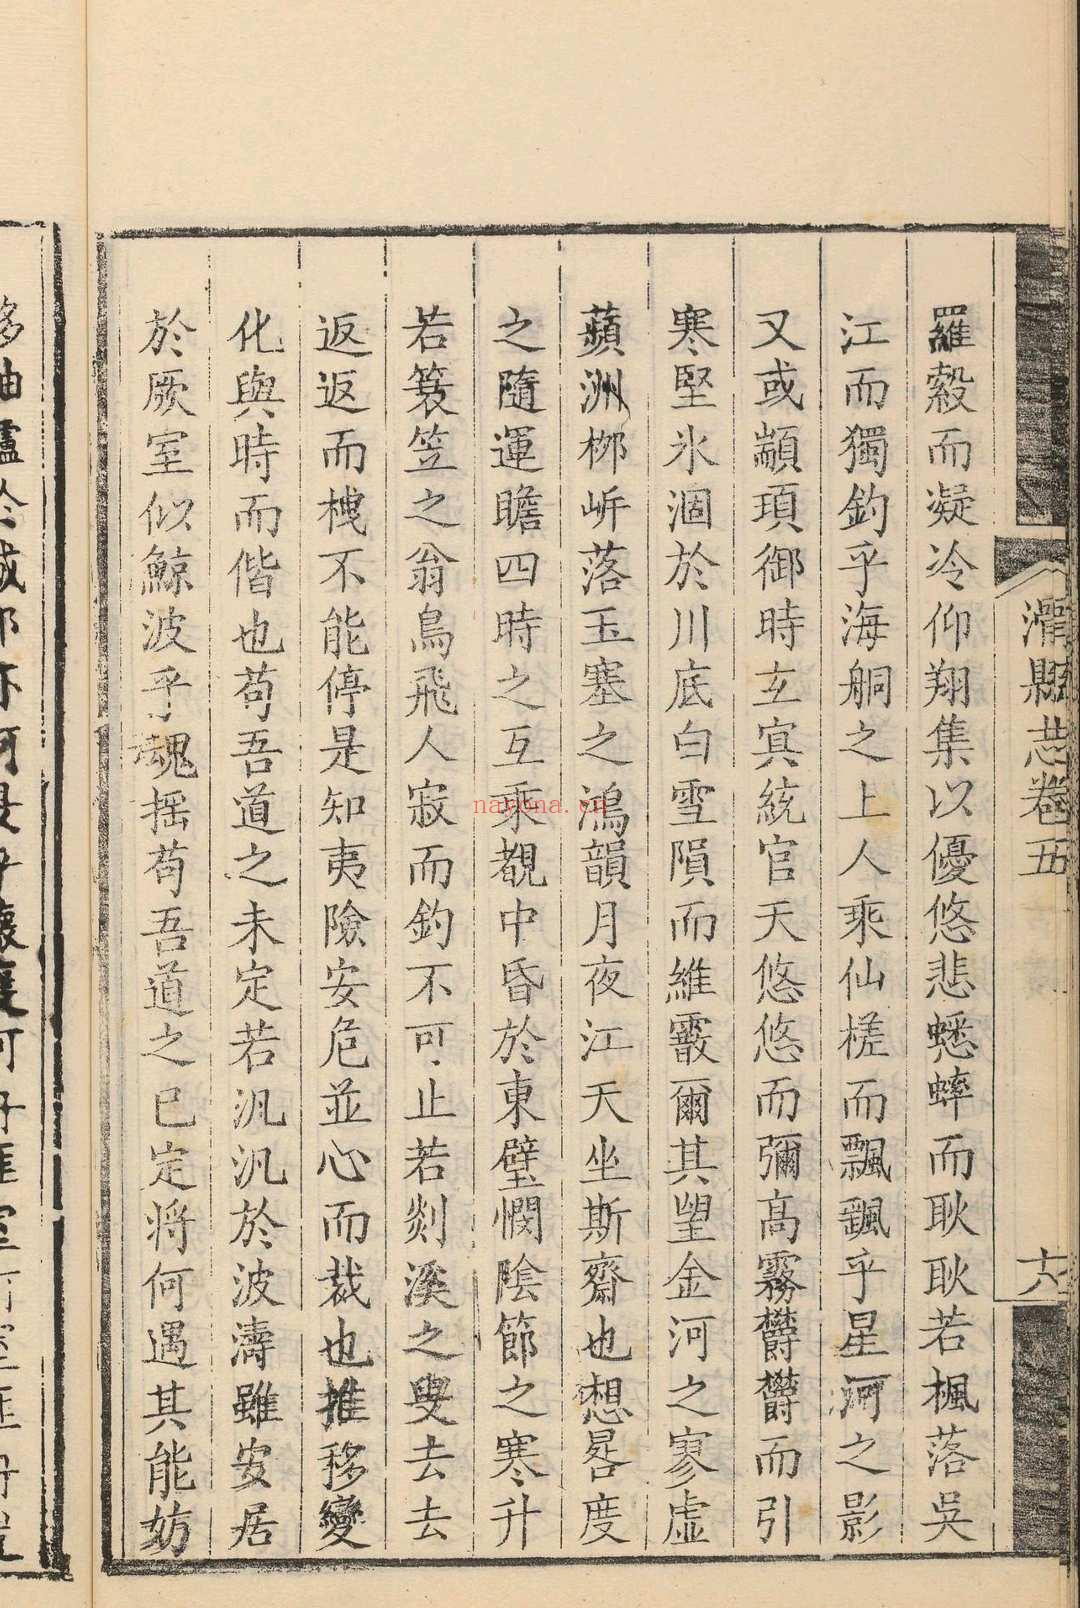 羅縠而凝冷仰翔集以優悠悲蟋蟀而耿耿若楓落吳
江而獨釣乎海舸之上人乘仙槎而飄飄乎星河之影
又或顓頊御時玄冥統官天悠悠而彌高霧欝欝而引
寒堅氷涸於川底白雪隕而維霰爾其望金河之寥虛
蘋洲柳岸落玉塞之鴻韻月夜江天坐斯齋也想晷度
之隨運瞻四時之互乘覩中昏於東壁憫陰節之寒升
若簑笠之翁鳥飛人寂而釣不可止若剡溪之叟去去
返返而棹不能停是知夷險安危並心而裁也推移變
化與時而偕也苟吾道之未定若汎汎於波濤雖安居
於厥室似鯨波乎魂摇苟吾道之已定將何遇其能妨
滑縣志卷五
六
nayona.cn